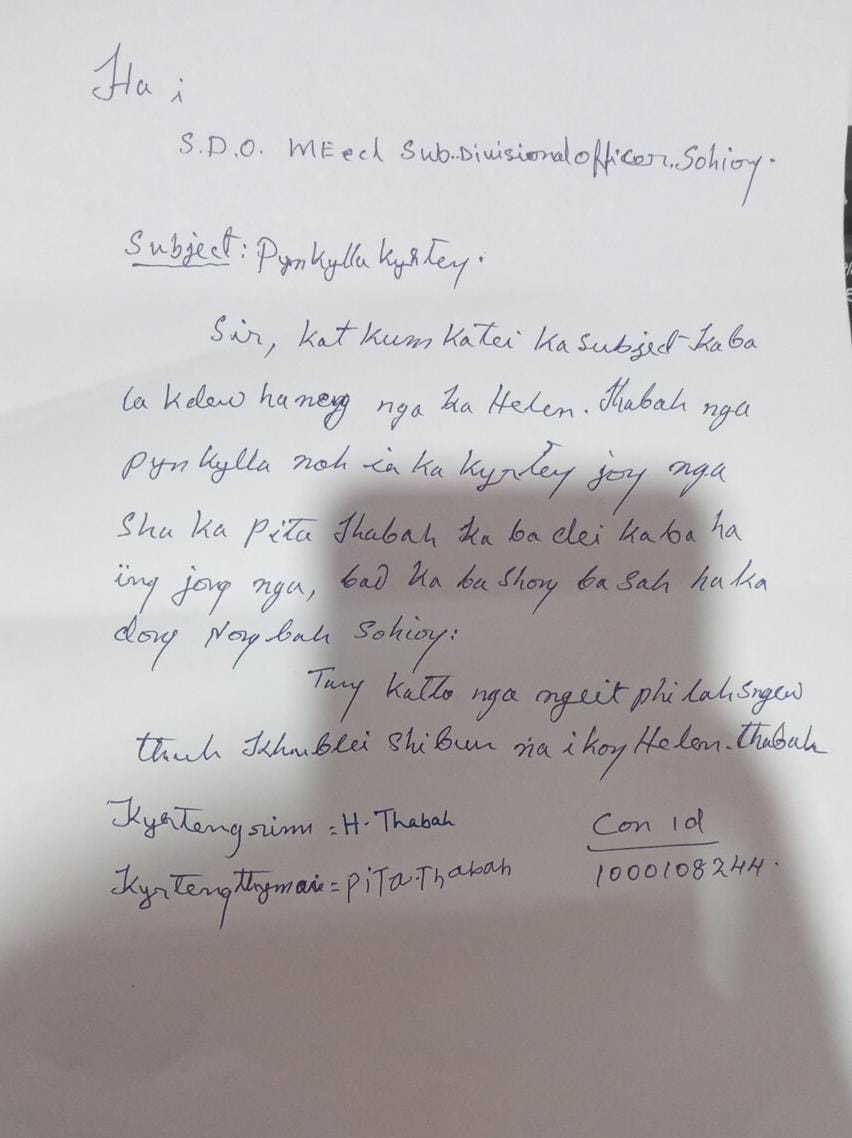 Ha i
S.D.O. MEecl Sub.Divisional officer, Sohiong.
Subject: Pynkylla kyrteng.
Sir, kat kum katei ka subject kaba
la kdew haneng nga ka Helen. Thabah nga
pynkylla noh ia ka kyrteng jong nga
sha ka Pita Thabah ka ba dei kaba ha
ïing jong nga, bad ka ba shong ba sah ha ka
dong Nongbah Sohiong:
Tang katto nga ngeit phi lah sngew
thuh Khublei shi bun na i kong Helen. Thabah
Kyrteng rim = H. Thabah
Con id
Kyrteng thymai = PiTa. Thabah
1000108244.